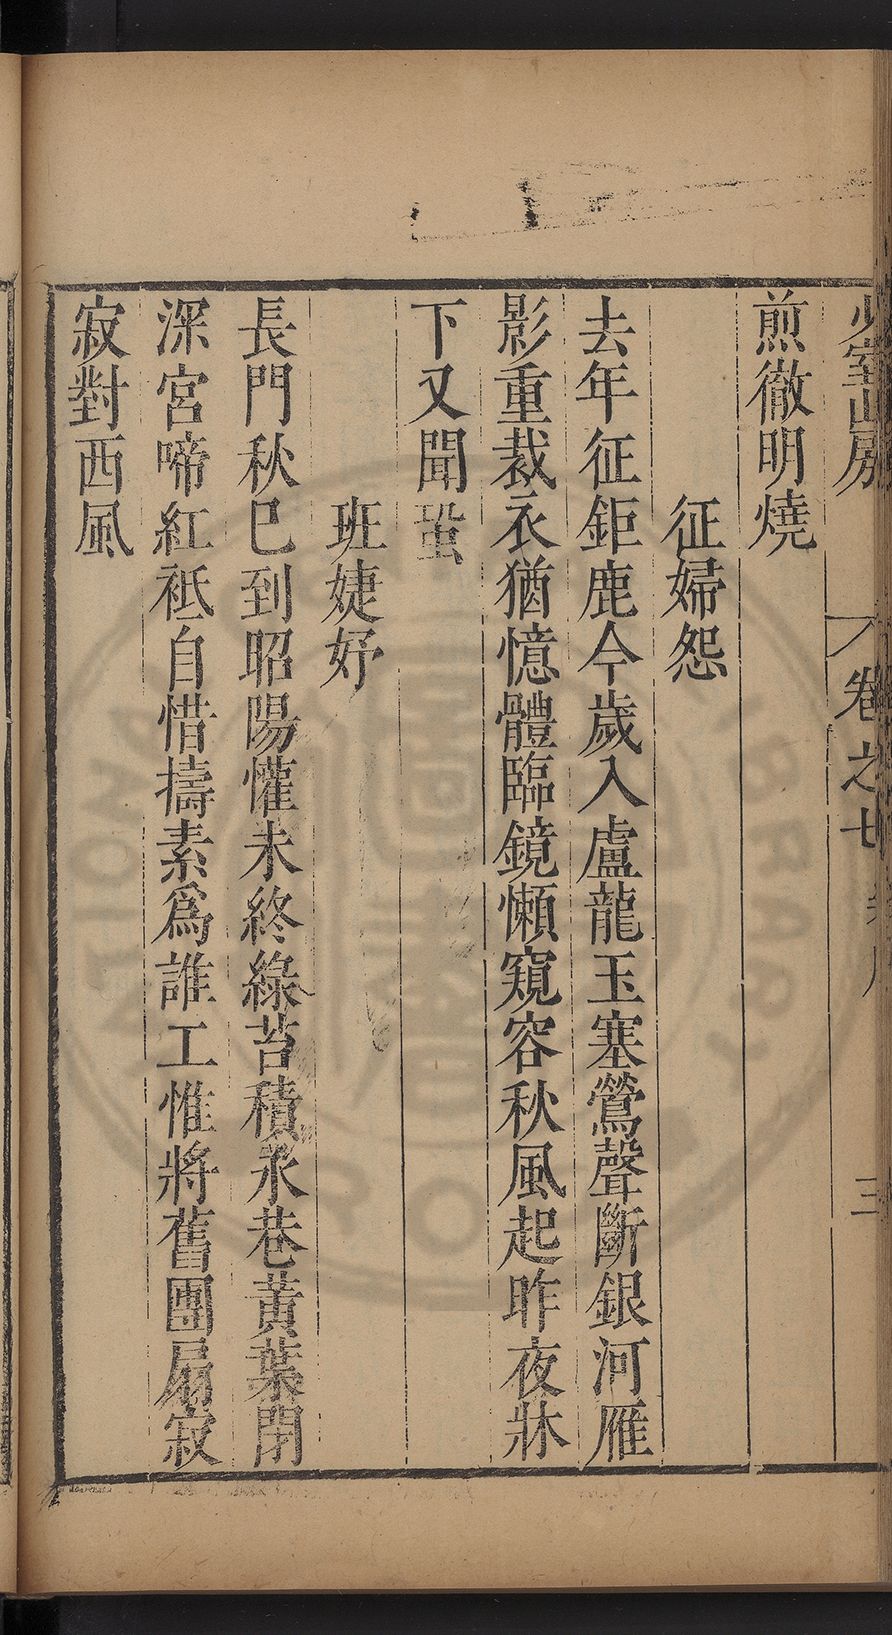 少室山房 卷之七 三
煎徹明燒
征婦怨
去年征鉅鹿今歲入盧龍玉塞鶯聲斷銀河雁
影重裁衣猶憶體臨鏡懶窺容秋風起昨夜牀
下又聞蛩
班婕妤
長門秋巳到昭陽懽未終綠苔積永巷黃葉閉
深宮啼紅衹自惜擣素爲誰工惟將舊團扇寂
寂對西風